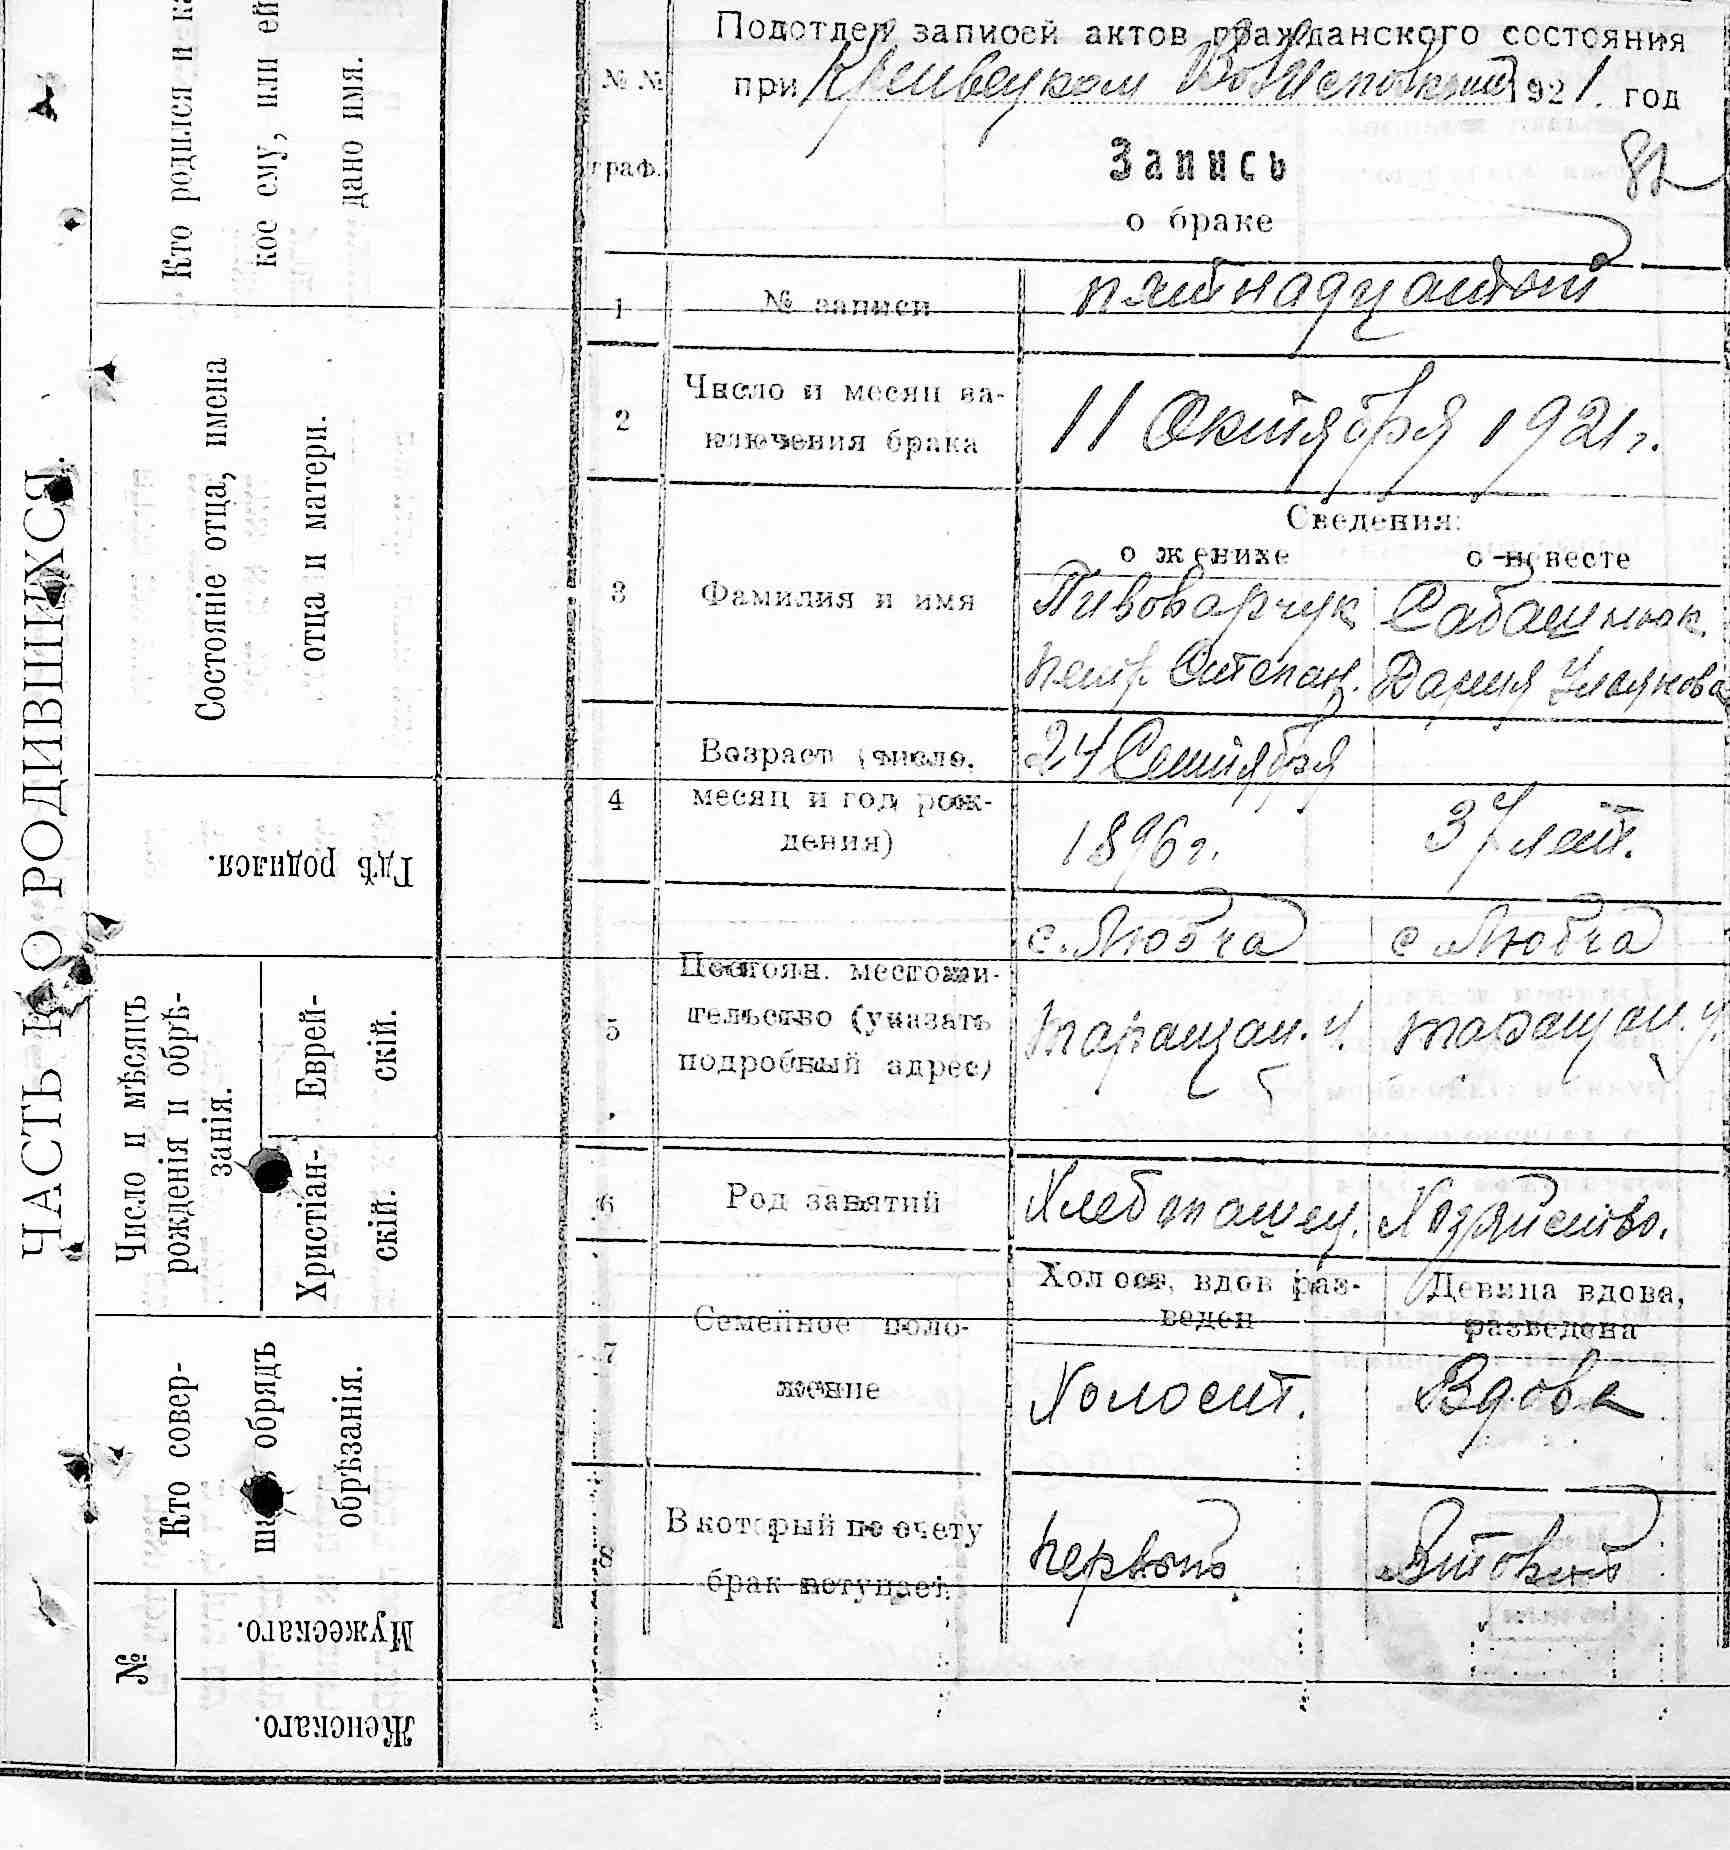 ЧАСТЬ I. О РОДИВШИХСЯ.
Кто родился и
кое ему, или ей
дано имя.
Состоянiе отца, имена
отца и матери.
Гдѣ родился.
Число и мѣсяцъ
рожденiя и обрѣ-
занiя.
Еврей-
скiй.
Христiан-
скiй.
Кто совер-
обрядъ
обрѣзанiя.
№
Мужескаго.
Женскаго.
Подотдел записей актов гражданского состояния
при 1921. год
№ №
граф.
Запись
о браке
82
1 № записи пятнадцатый
2 Число и месяц за-
ключения брака
11 Октября 1921 г.
Сведения:
о женихе о невесте
3 Фамилия и имя
Пивоварчук Сабашнюк
Петр. Степан. Дария Улянова
4 Возраст (число,
месяц и год рож-
дения)
24 Сентября
1896 г. 37 лет.
5 Постоян. местожи-
тельство (указать
подробный адрес)
с. Любча с Любча
Таращан. у. Таращан. у.
6 Род занятий Хлебопашец. Хозяйство.
Холост, вдов раз-
веден
Девица вдова,
разведена
7 Семейное поло-
жение
Холост. Вдова
8 В который по счету
брак вступает.
первый Вторый